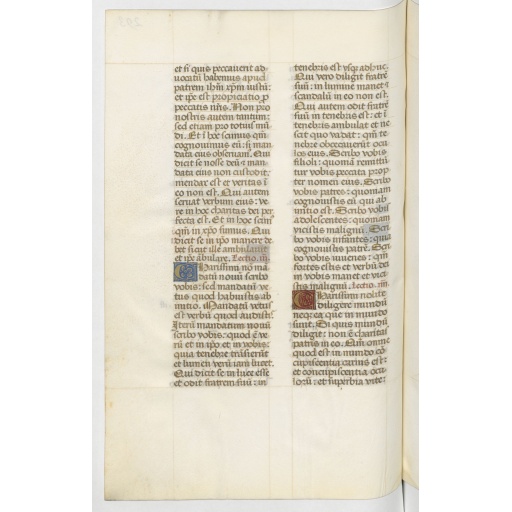 et si quis peccaverit ad
vocatū habemus apud
patrem ihm xpm iustū:
et ipse est propiciatio p
peccatis nris. Non pro
nostris autem tantum:
sed etiam pro totius mū
di. Et ī hoc scimus qm
cognovimus eū: si man
data eius observem. Qui
dicit se nosse deū et man
data eius non custodit:
mendax est et veritas ī
eo non est. Qui autem
servat verbum eius: ve
re in hoc charitas dei per
fecta est. Et in hoc scim
qm in xpo sumus. Qui
dicit se in ipo manere de
bet sicut ille ambulavit
et ipe ābulare. Lectio. iij.
Charissimi no ma
datū novū scribo
vobis: sed mandatū ve
tus quod habuistis ab
initio. Mandatū vetus
est verbū quod audistis
Iterū mandatum novū
scribo vobis: quod ē ve
rū et in ipo et in vobis:
quia tenebre trāsierūt
et lumen verū iam lucet.
Qui dicit se in luce esse
et odit fratrem suū: in
tenebris est usq adhuc.
Qui vero diligit fratrē
suū: in lumine manet et
scandalū in eo non est.
Qui autem odit fratrē
suū in tenebris est: et ī
tenebris ambulat et ne
scit quo vadat: qm te
nebre obcecaverūt ocu
los eius. Scribo vobis
filioli: quoniā remittū
tur vobis peccata prop
ter nomen eius. Scribo
vobis patres: quoniam
cognovistis eū qui ab
initio est. Scribo vobis
adolescentes: quoniam
vicistis malignū. Scri
bo vobis infantes: quia
cognovistis patrē. Scri
bo vobis iuvenes: qm
fortes estis et verbū dei
in vobis manet et vici
stis malignū. Lectio. iiij.
Charissimi nolite
diligere mundū
neq ea que in mundo
sunt. Si quis mundū
diligit: non ē charitas
patris in eo. Qm omne
quod est in mundo cō
cupiscentia carnis est:
et concupiscentia ocu
lorū: et superbia vite: